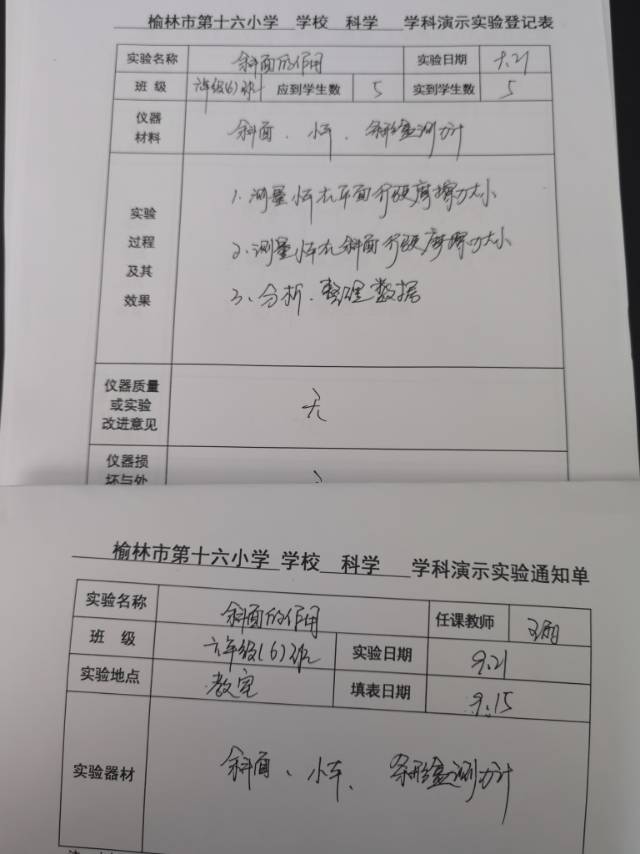 榆林市第十六小学 学校 科学 学科演示实验登记表
实验名称 斜面的作用 实验日期 9.21
班 级 六年级(6)班 应到学生数 5 实到学生数 5
仪器
材料
斜面、小车、条形盒测力计
实验
过程
及其
效果
1.测量小车在平面行驶摩擦力大小
2.测量小车在斜面行驶摩擦力大小
3、分析、整理数据
仪器质量
或实验
改进意见
无
仪器损
坏与处
榆林市第十六小学 学校 科学 学科演示实验通知单
实验名称 斜面的作用 任课教师
班 级 六年级(6)班 实验日期 9.21
实验地点 教室 填表日期 9.15
实验器材 斜面、小车、条形盒测力计